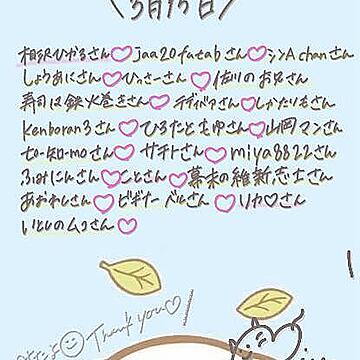 \3月15日/
相沢ひかるさん♡jaa20futabさん♡シンAchanさん♡
しょうあにさん♡ひっさーさん♡佐川のお兄さん
寿司は鉄火巻きさん♡テディベアさん♡しかたりもさん♡
Kenboran3さん♡ひろたとむゆさん♡山岡マンさん♡
セロ-知-moさん♡サチトさん♡miya8822さん♡
ふみにんさん♡ことさん♡幕末の維新志士さん♡
あおわしさん♡ビギナーベルさん♡リカ♡さん♡
いとしのムコさん♡
Thank you♡